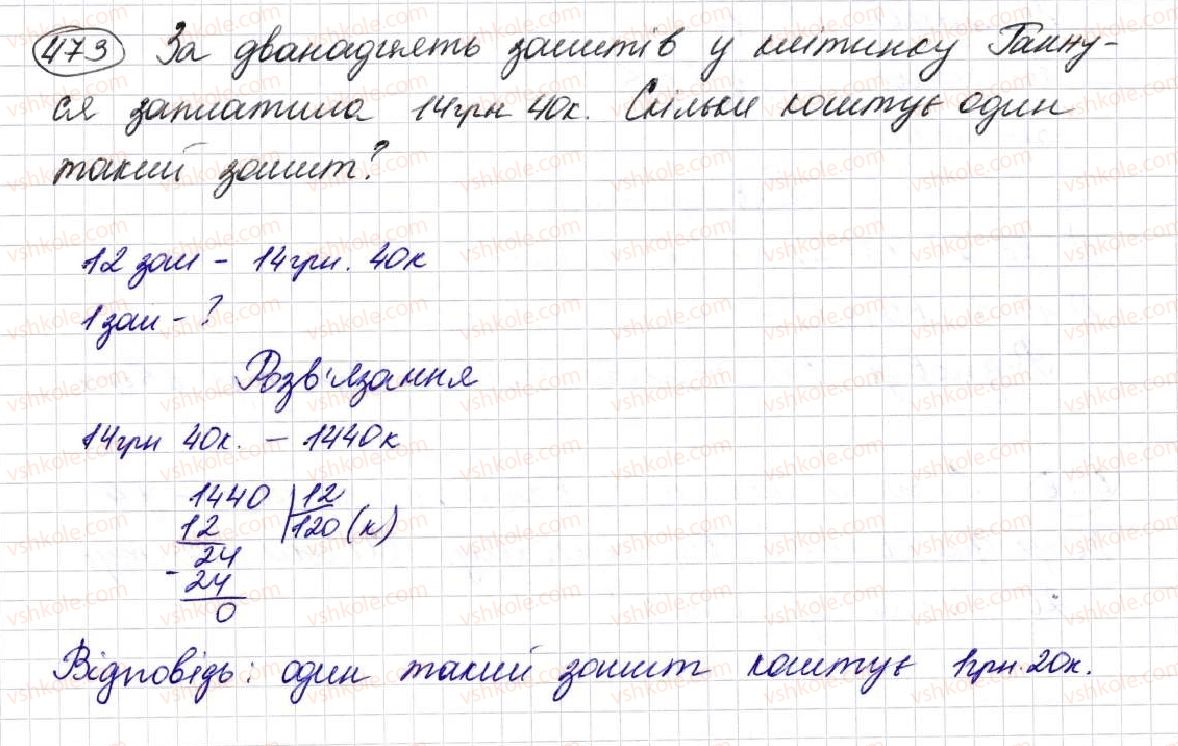 473 За дванадцять зошитів у клітинку Ганну-
ся заплатила 14грн 40к. Скільки коштує один
такий зошит?
12 зош - 14грн. 40к
1 зош - ?
Розв'язання
14грн 40к. - 1440к
1440 | 12
12 | 120 (к)
24
- 24
0
Відповідь: один такий зошит коштує 1грн. 20к.